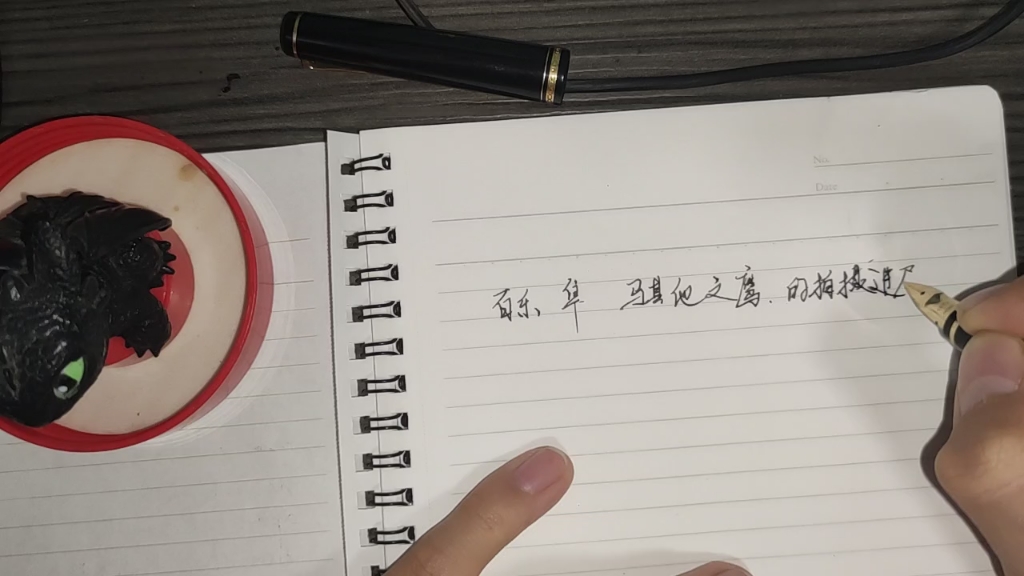 No.
Date
百乐 华 马其他之鹰.的拍摄进